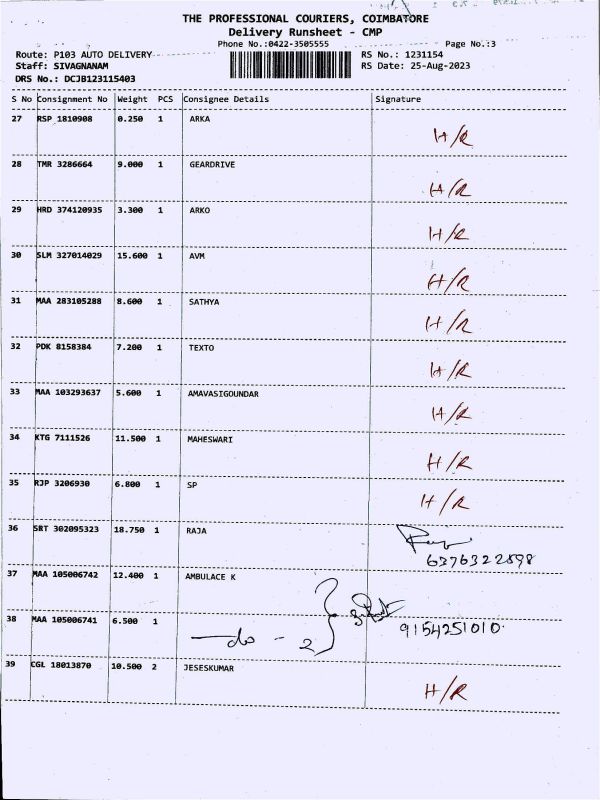 THE PROFESSIONAL COURIERS, COIMBATORE
Delivery Runsheet - CMP
Phone No.:0422-3505555 Page No.:3
Route: P103 AUTO DELIVERY RS No.: 1231154
Staff: SIVAGNANAM RS Date: 25-Aug-2023
DRS No.: DCJB123115403
S No Consignment No Weight PCS Consignee Details Signature
27 RSP 1810908 0.250 1 ARKA
H/R
28 TMR 3286664 9.000 1 GEARDRIVE
H/R
29 HRD 374120935 3.300 1 ARKO
H/R
30 SLM 327014029 15.600 1 AVM
H/R
31 MAA 283105288 8.600 1 SATHYA
H/R
32 PDK 8158384 7.200 1 TEXTO
H/R
33 MAA 103293637 5.600 1 AMAVASIGOUNDAR
H/R
34 KTG 7111526 11.500 1 MAHESWARI
H/R
35 RJP 3206930 6.800 1 SP
H/R
36 SRT 302095323 18.750 1 RAJA
6376322898
37 MAA 105006742 12.400 1 AMBULACE K
38 MAA 105006741 6.500 1
—do - 2 9154251010
39 CGL 18013870 10.500 2 JESESKUMAR
H/R